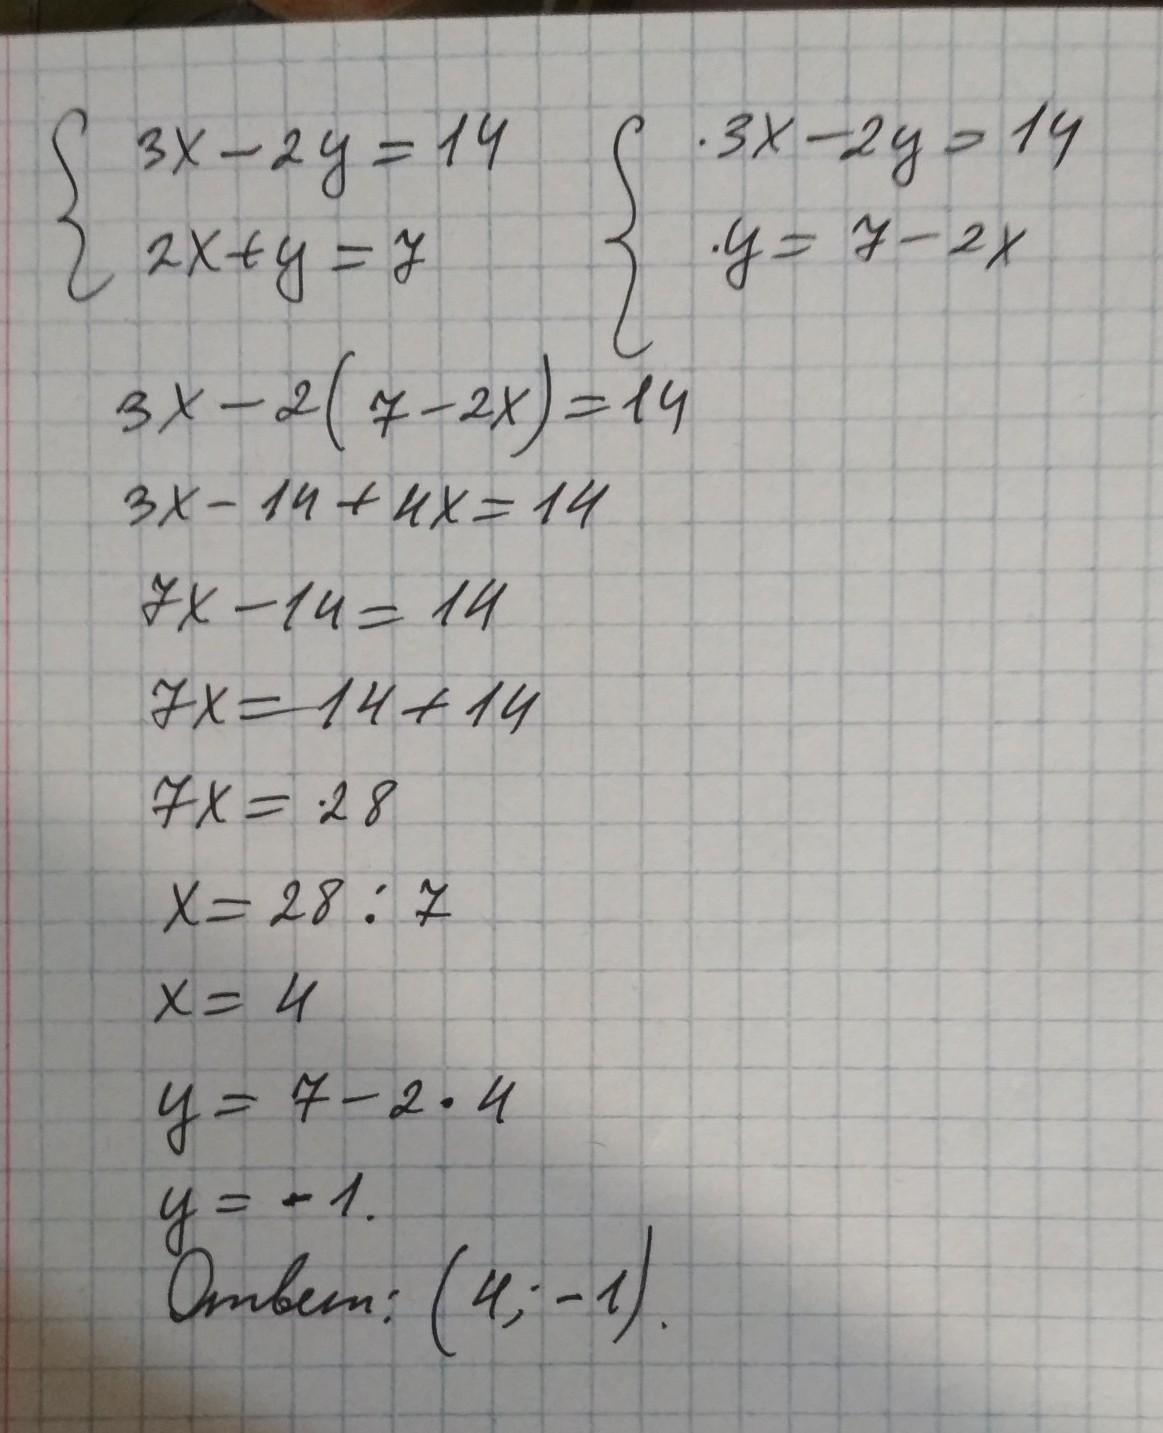 3x-2y=14
2x+y=7
3x-2y=14
y=7-2x
3x-2(7-2x)=14
3x-14+4x=14
7x-14=14
7x=14+14
7x=28
x=28:7
x=4
y=7-2·4
y=-1.
Ответ: (4;-1).